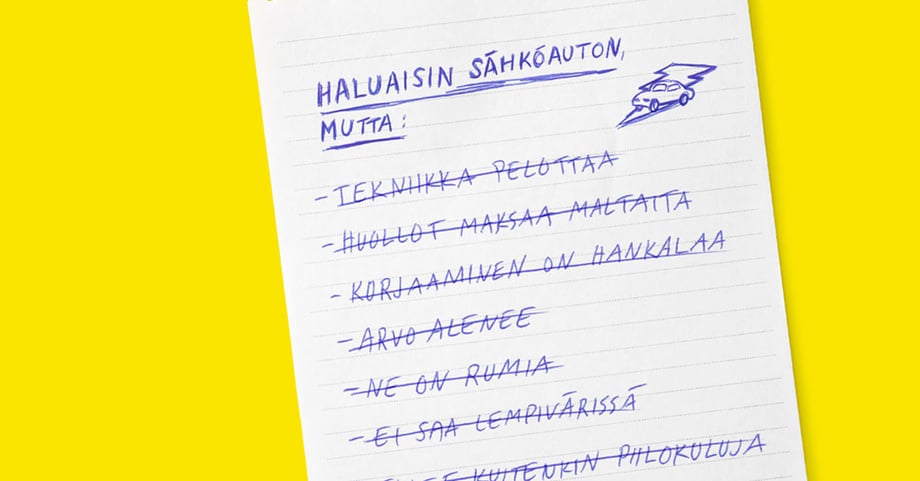 HALUAISIN SÄHKÖAUTON,
MUTTA:
- TEKNIIKKA PELOTTAA
- HUOLLOT MAKSAA MALTAITA
- KORJAAMINEN ON HANKALAA
- ARVO ALENEE
- NE ON RUMIA
- EI SAA LEMPIVÄRISSÄ
KUITENKIN PIILOKULUJA